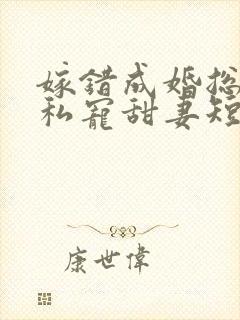 嫁错成婚总
私宠甜妻短
康世偉